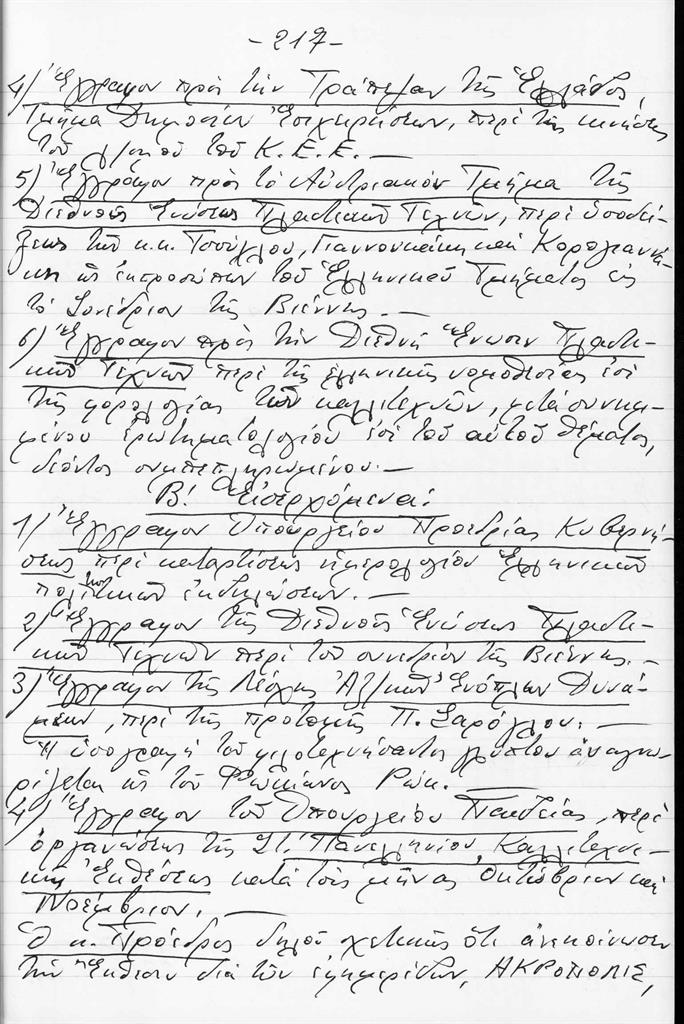 -217-
4) Ἔγγραφον πρὸς τὴν Τράπεζαν τῆς Ἑλλάδος,
Τμῆμα Δημοσίων Ἐπιχειρήσεων, περὶ τῆς κινήσεως
τοῦ λ/σμοῦ τοῦ Κ.Ε.Ε. —
5) Ἔγγραφον πρὸς τὸ Αὐστριακὸν Τμῆμα τῆς
Διεθνοῦς Ἑνώσεως Πλαστικῶν Τεχνῶν, περὶ ὑποδεί-
ξεως τῶν κ.κ. Τσούχλου, Γιαννουκάκη καὶ Κορογιαννά-
κη ὡς ἐκπροσώπων τοῦ Ἑλληνικοῦ Τμήματος εἰς
τὸ Συνέδριον τῆς Βιέννης. —
6) Ἔγγραφον πρὸς τὴν Διεθνῆ Ἕνωσιν Πλαστι-
κῶν Τεχνῶν περὶ τῆς ἑλληνικῆς νομοθεσίας ἐπὶ
τῆς φορολογίας τῶν καλλιτεχνῶν, μετὰ συνημ-
μένου ἐρωτηματολογίου ἐπὶ τοῦ αὐτοῦ θέματος,
δεόντως συμπεπληρωμένου. —
Β! Εἰσερχόμενα:
1) Ἔγγραφον Ὑπουργείου Προεδρίας Κυβερνή-
σεως περὶ καταρτίσεως ἡμερολογίου Ἑλληνικῶν
πολιτιστικῶν ἐκδηλώσεων. —
2) Ἔγγραφον τῆς Διεθνοῦς Ἑνώσεως Πλαστι-
κῶν Τεχνῶν περὶ τοῦ συνεδρίου τῆς Βιέννης. —
3) Ἔγγραφον τῆς Λέσχης Ἀξ/κῶν Ἐνόπλων Δυνά-
μεων, περὶ τῆς προτομῆς Π. Σαρόγλου. —
Ἡ ὑπογραφὴ τοῦ φιλοτεχνήσαντος γλύπτου ἀναγνω-
ρίζεται ὡς τοῦ Φωκίωνος Ρώκ. —
4) Ἔγγραφον τοῦ Ὑπουργείου Παιδείας, περὶ
ὀργανώσεως τῆς ΣΤ! Πανελληνίου Καλλιτεχνι-
κῆς Ἐκθέσεως κατὰ τοὺς μῆνας Ὀκτώβριον καὶ
Νοέμβριον. —
Ὁ κ. Πρόεδρος δηλοῖ σχετικῶς ὅτι ἀνεκοίνωσεν
τὴν Ἔκθεσιν διὰ τῶν ἐφημερίδων, ΑΚΡΟΠΟΛΙΣ,